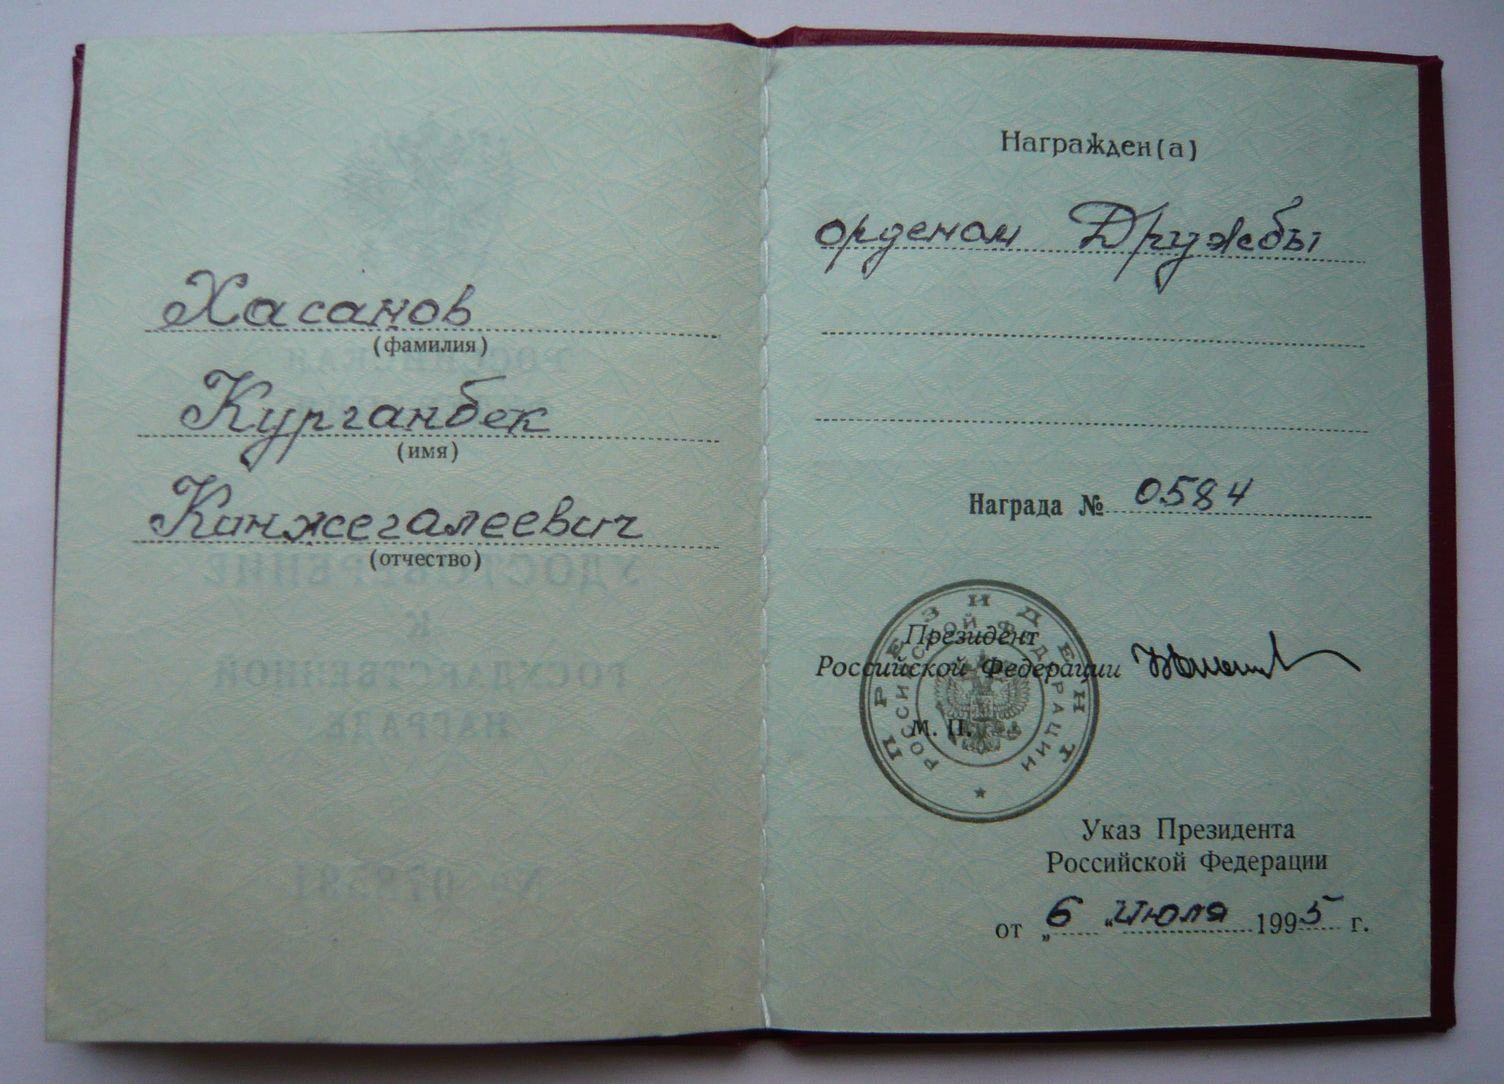 Хасанов
(фамилия)
Курганбек
(имя)
Кинжегалеевич
(отчество)
УДОСТОВЕРЕНИЕ
К
ГОСУДАРСТВЕННОЙ
НАГРАДЕ
Награжден(а)
орденом Дружбы
Награда № 0584
Президент
Российской Федерации
М. П.
ПРЕЗИДЕНТ
РОССИЙСКОЙ ФЕДЕРАЦИИ
Указ Президента
Российской Федерации
от „6“ Июля 1995 г.